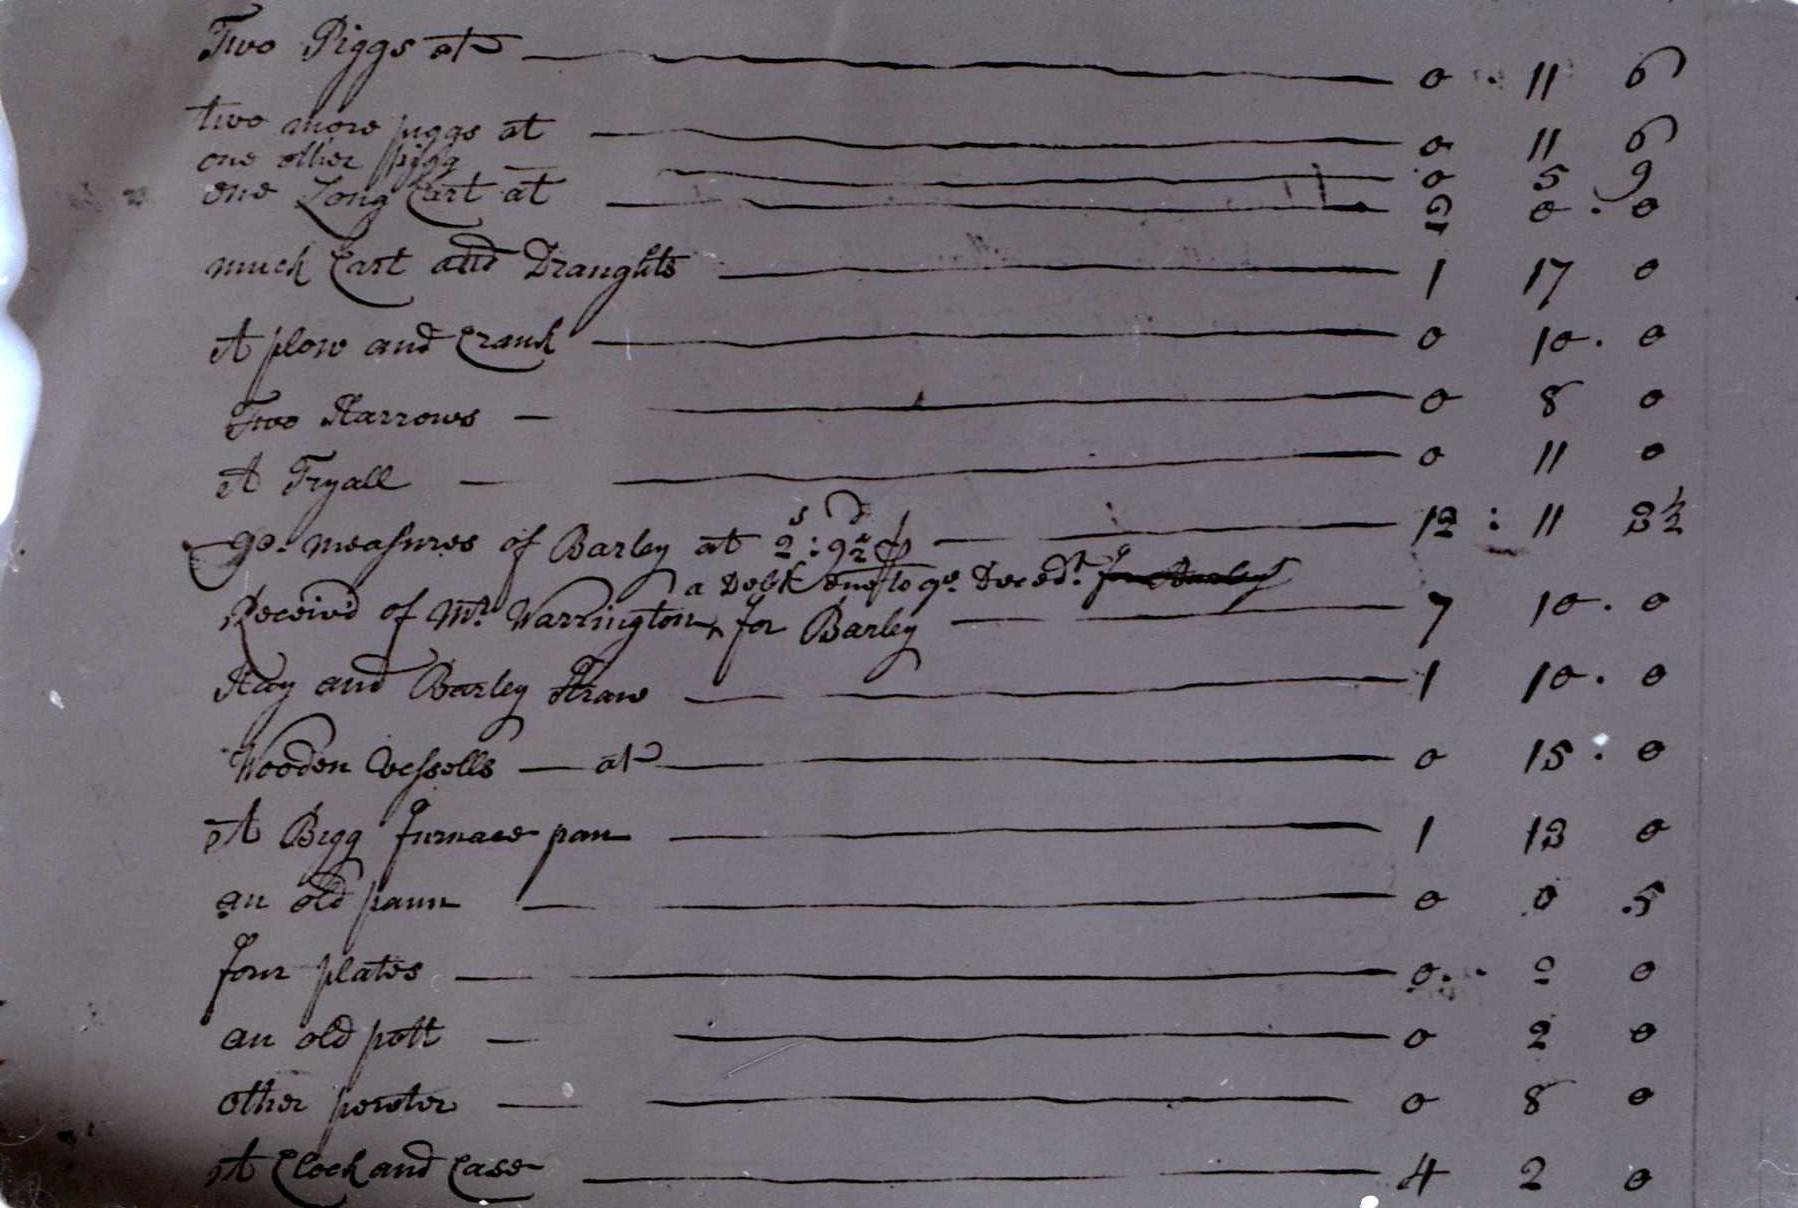 Two Piggs at 0 . 11 6
two more piggs at 0 11 6
one other pigg 0 5 9
one Long Cart at 2 0 . 0
muck Cart and Draughts 1 17 0
A plow and Crank 0 10 . 0
Two Harrows 0 8 0
A Fryall 0 11 0
90. measures of Barley at 2s : 9½d p 12 : 11 3½
a Debt due to ye Deced. for Barley
Receiv'd of Mr. Warrington ^ for Barley 7 10 . 0
Hay and Barley Straw 1 10 . 0
Wooden Vessells at 0 15 . 0
A Bigg furnace pan 1 13 0
an old pann 0 0 .5
four plates 0 . 2 0
an old pott 0 2 0
other pewter 0 8 0
A Clock and Case 4 2 0